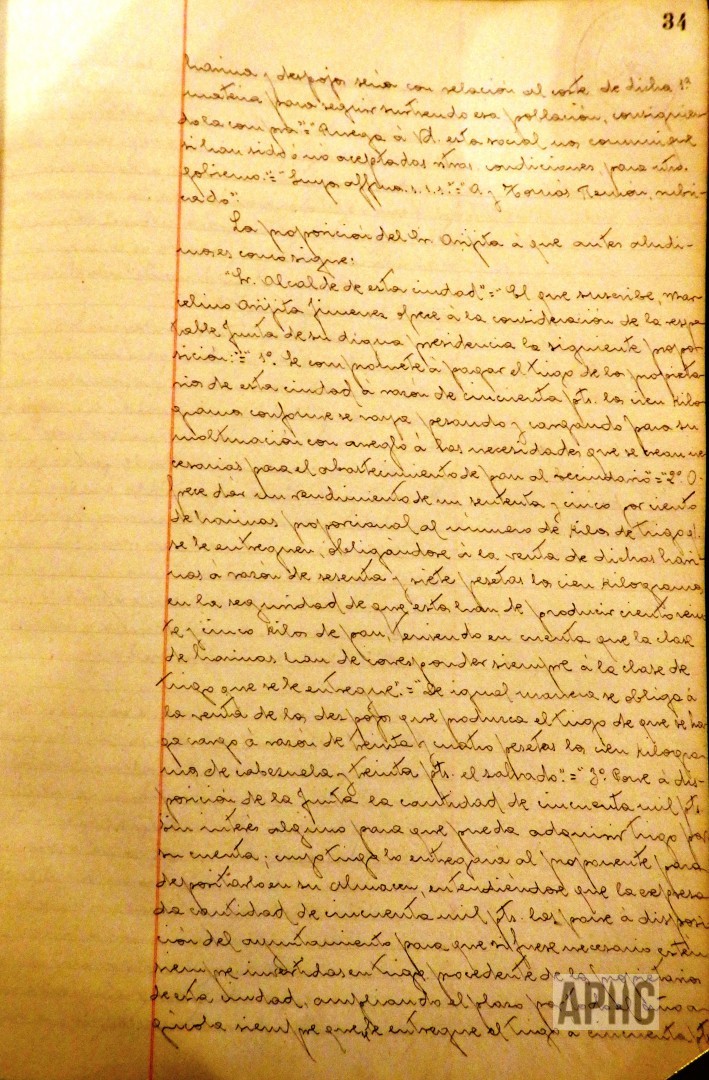 34
harina y despojos seria con relación al coste de dicha 1ª
materia para seguir surtiendo esa población, consiguien-
do la compra"="Ruega à Vd. esta social nos comunique
si han sido ó no aceptadas ntras. condiciones, para ntro.
gobierno."="Suya affma. s.s.s."= A. y Tomas Remon, rubri-
cado".
La proposición del Sr. Orijita à que antes aludi-
moses como sigue:
"Sr. Alcalde de esta ciudad"="El que suscribe, Mar-
celino Orijita Jimenez ofrece à la consideración de la respe-
table Junta de su digna presidencia la siguiente propo-
sición:"="1º. Se compromete à pagar el trigo de los propieta-
rios de esta ciudad à razón de cincuenta pts. los cien kilo-
gramos conforme se vaya pesando y cargando para su
molturación con arreglo à las necesidades que se crean ne-
cesarias para el abastecimiento de pan al vecindario"="2º. O-
frece dàr un rendimiento de un setenta y cinco por ciento
de harinas proporcional al número de kilos de trigo q.
se le entreguen, obligàndose à la venta de dichas hari-
nas à razón de sesenta y siete pesetas los cien kilogramos
en la seguridad de que estos han de producir ciento vein-
te y cinco kilos de pan, teniendo en cuenta que la clase
de harinas han de corresponder siempre à la clase de
trigo que se le entregue"."="De igual manera se obliga à
la venta de los despojos que produzca el trigo de que se ha-
ga cargo à razón de treinta y cuatro pesetas los cien kilogra-
mos de cabezuela y treinta pts. el salvado."="3º. Pone à dis-
posición de la Junta la cantidad de cincuenta mil pts.
sin interés alguno para que pueda adquirir trigo por
su cuenta; cuyo trigo lo entregaria al proponente para
depositarlo en su Almacen, entendiéndose que la expresa-
da cantidad de cincuenta mil pts. las pone à disposi-
ción del ayuntamiento para que si fuese necesario esten
siempre invertidas en trigo procedente de los propietarios
de esta ciudad, ampliando el plazo para del año a-
gricola siempre que se le entregue el trigo à cincuenta pts
APHC